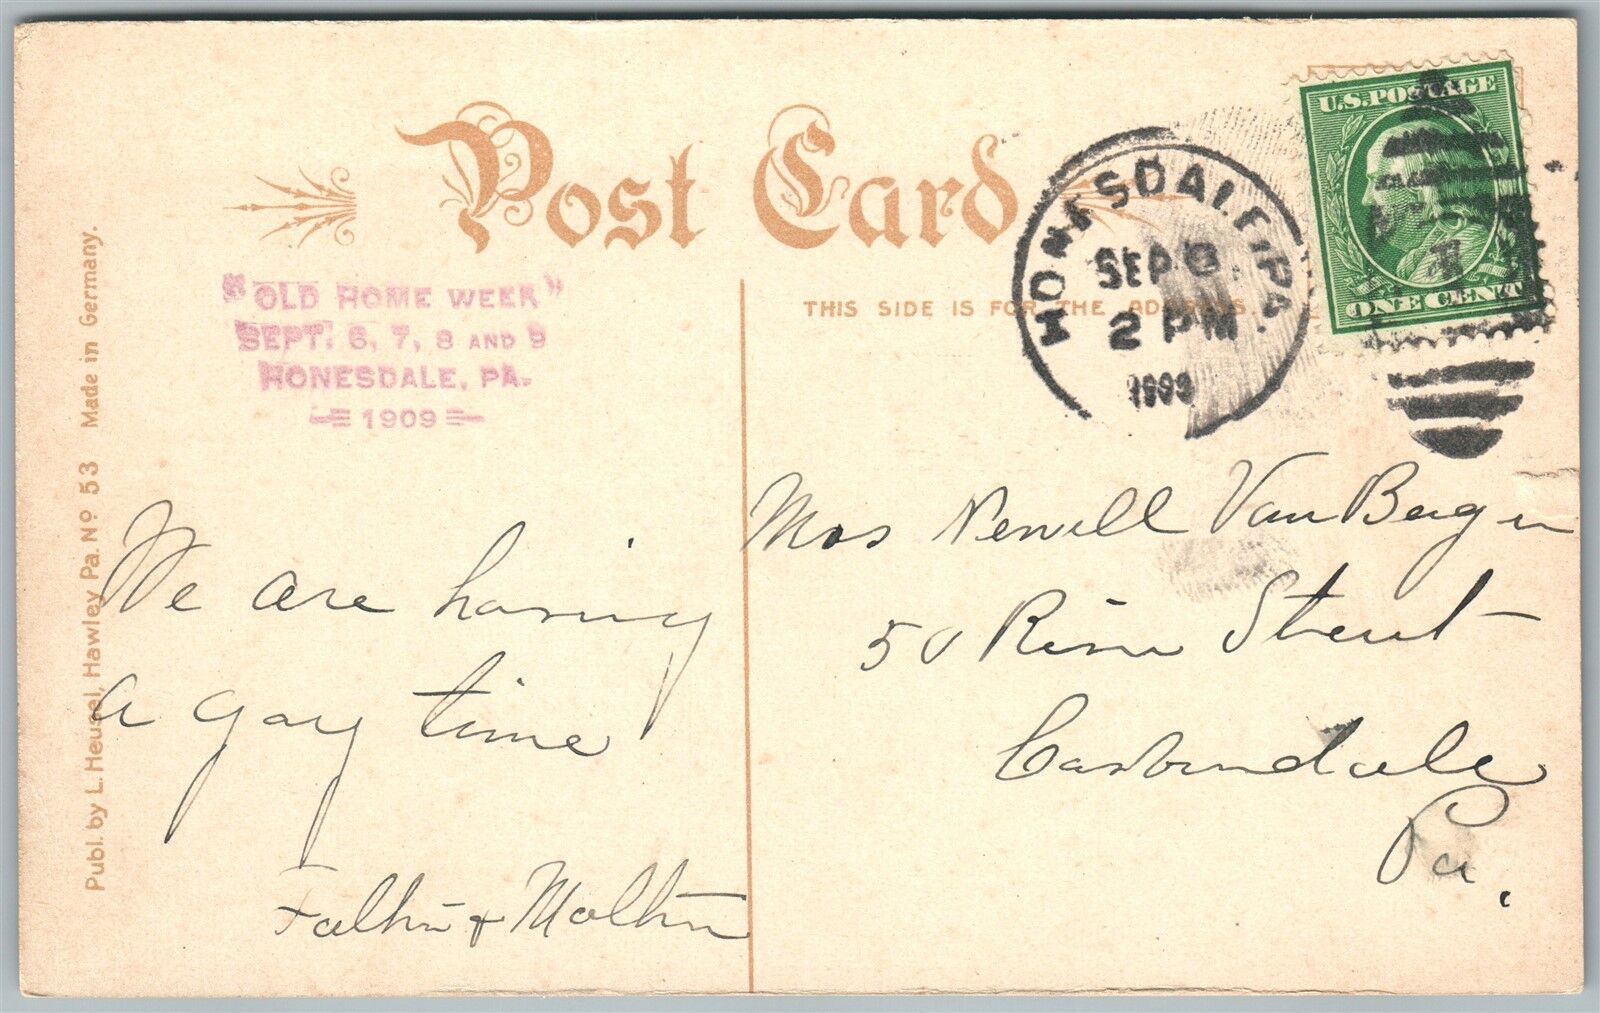 Post Card
"OLD HOME WEEK"
SEPT. 6, 7, 8 AND 9
HONESDALE, PA.
1909
THIS SIDE IS FOR THE ADDRESS.
HONESDALE, PA.
SEP
2 PM
1909
U.S. POSTAGE
ONE CENT
Publ. by L. Heusel, Hawley Pa. No 53 Made in Germany.
We are having
a gay time
&
Mrs Newell Van Bergen
50 River Street
Carbondale
Pa.